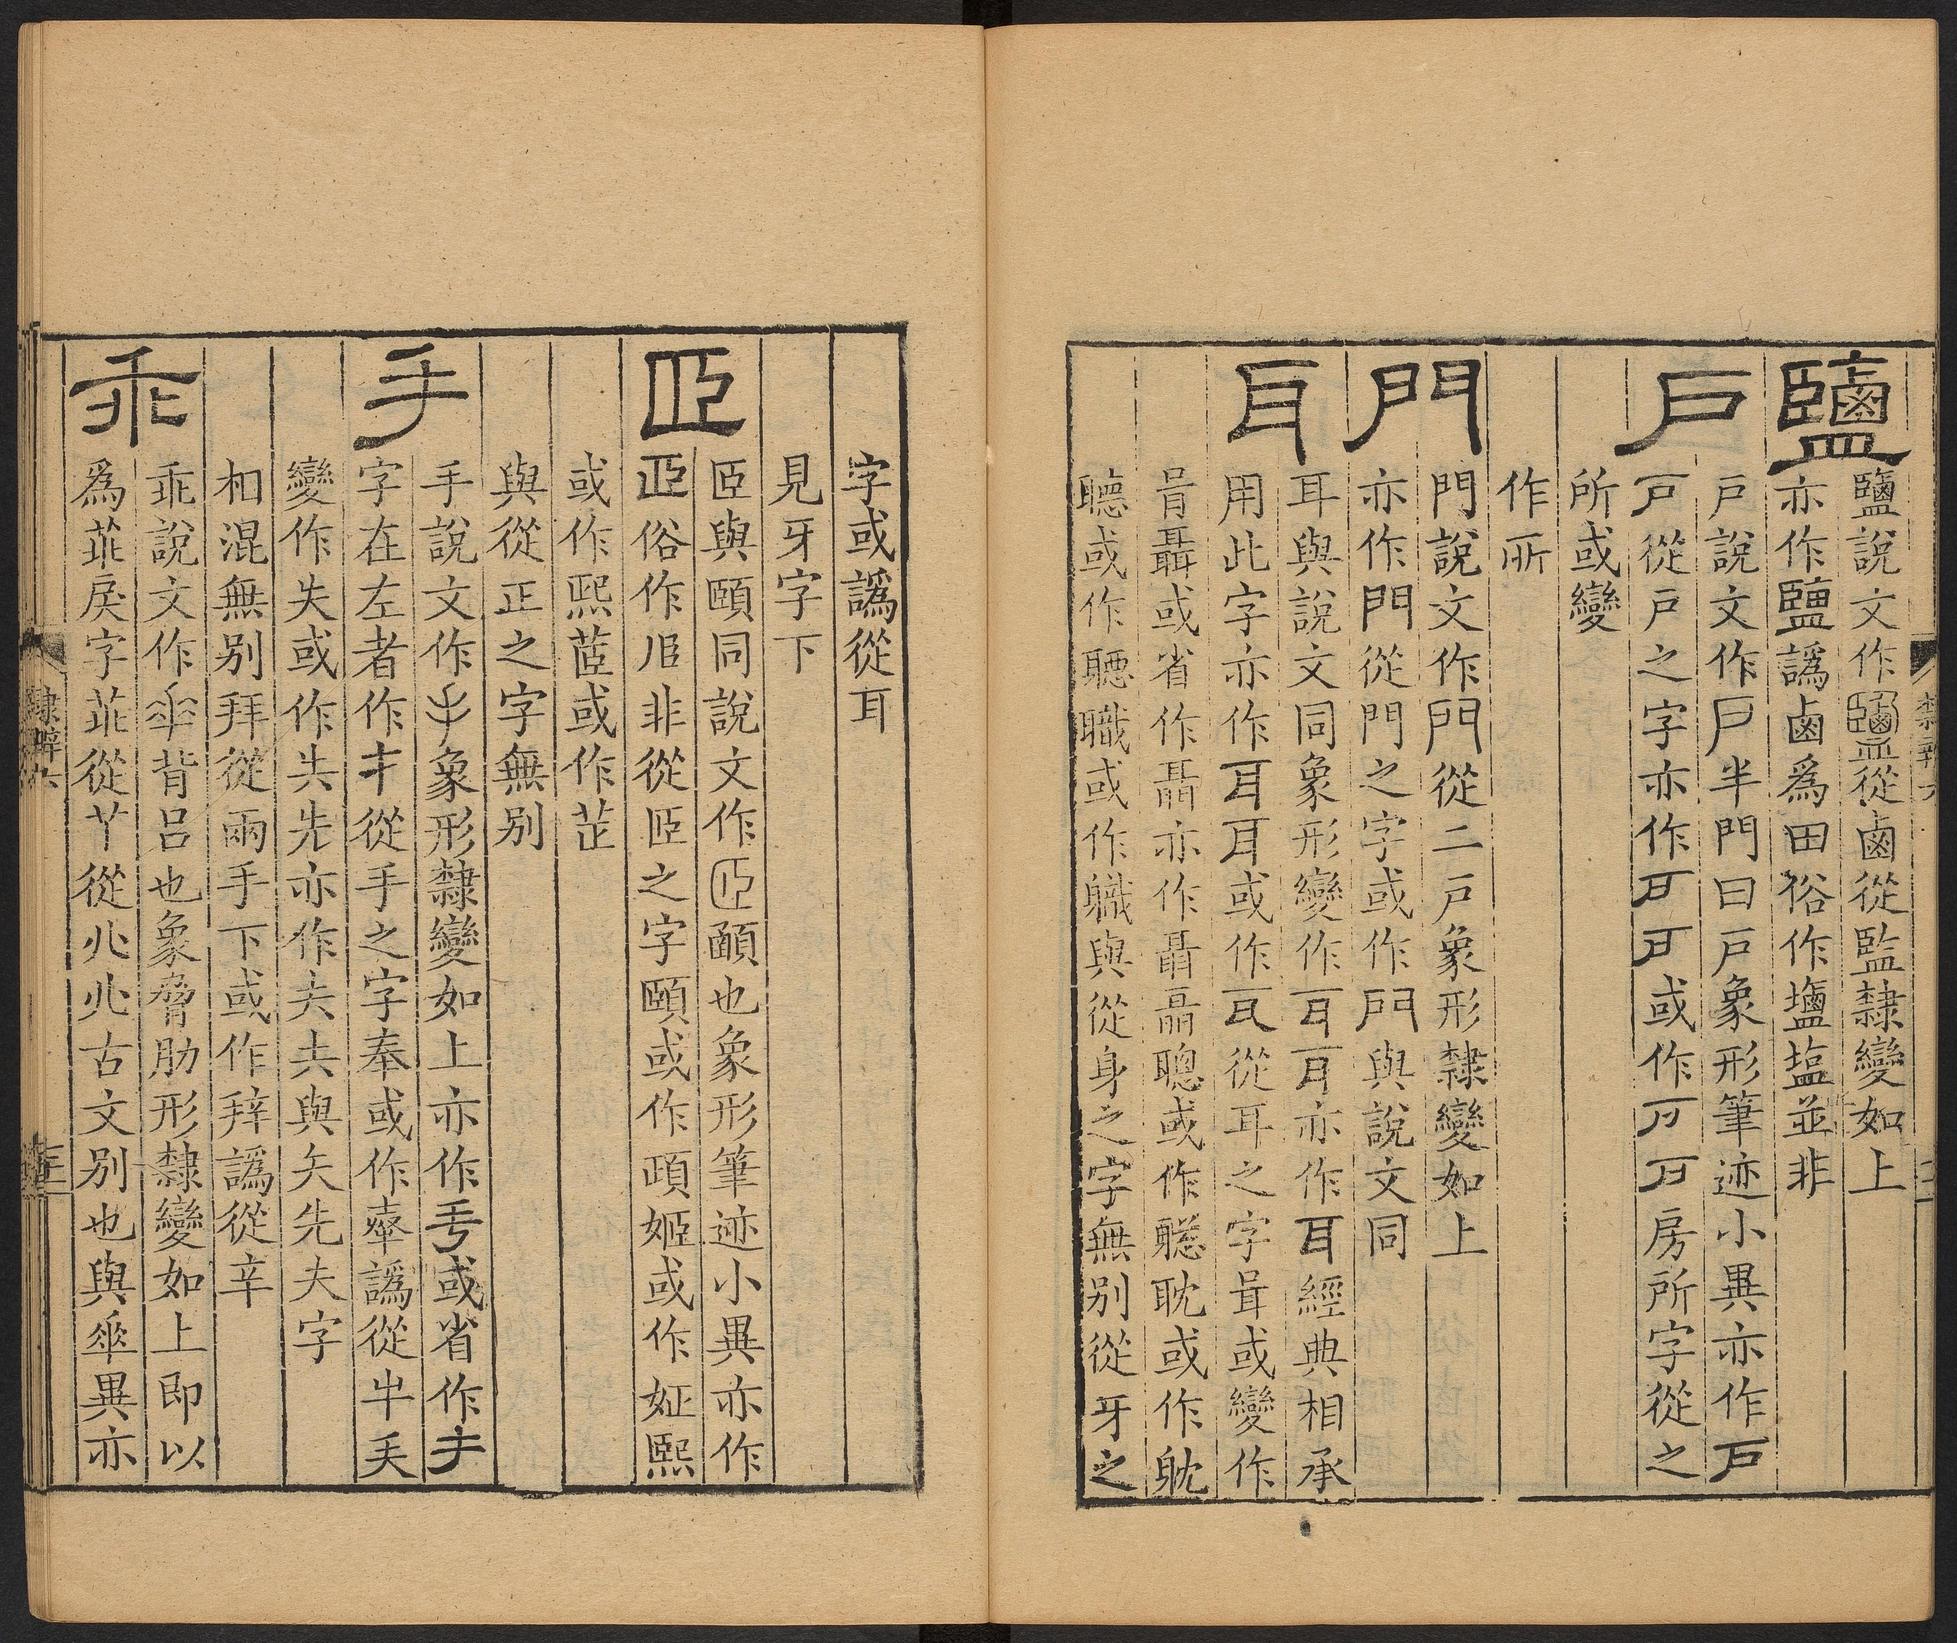 鹽
鹽說文作從鹵從監隸變如上
亦作鹽譌鹵爲田俗作塩塩並非
戶
戶說文作戶半門曰戶象形筆迹小異亦作戶
戶從戶之字亦作或作房所字從之
所或變
作所
門
門說文作門從二戶象形隸變如上
亦作門從門之字或作門與說文同
耳
耳與說文同象形變作耳耳亦作耳經典相承
用此字亦作耳耳或作從耳之字咠或變作
咠聶或省作聶亦作聶聶聰或作聡耽或作躭
聽或作聽職或作軄與從身之字無別從牙之
字或譌從耳
見牙字下
𦣞
𦣞與頤同說文作𦣞顄也象形筆迹小異亦作
俗作非從𦣞之字頤或作頤姬或作姃熙
或作熙茝或作芷
與從正之字無別
手
手說文作手象形隸變如上亦作或省作
字在左者作扌從手之字奉或作譌從
變作失或作失先亦作夫夫與矢先夫字
相混無別拜從兩手下或作拜譌從辛
乖
乖說文作背呂也象脅肋形隸變如上即以
爲戾字從从古文別也與異亦
隸辨六